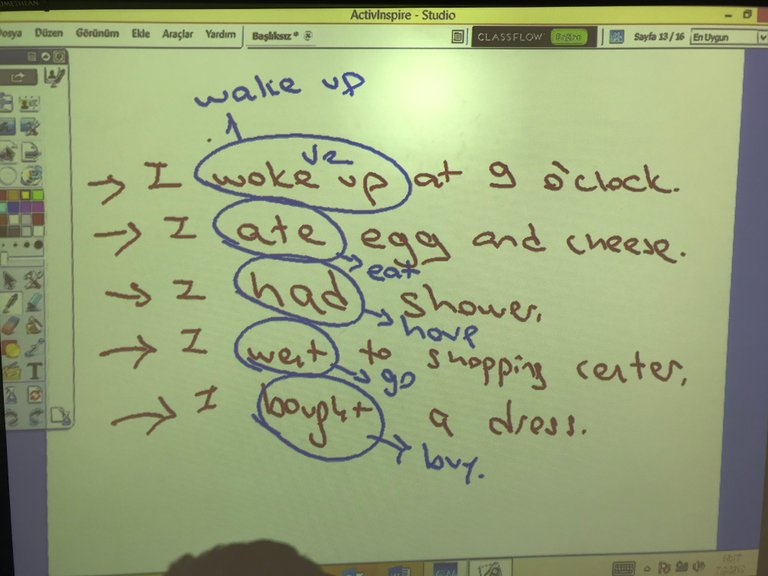 ActivInspire - Studio
Dosya Düzen Görünüm Ekle Araçlar Yardım Başlıksız * CLASSFLOW Sayfa 13 / 16 En Uygun
wake up
V2
→ I woke up at 9 o'clock.
→ I ate egg and cheese.
→ eat
→ I had shower.
→ have
→ I went to shopping center.
→ go
→ I bought a dress.
→ buy.